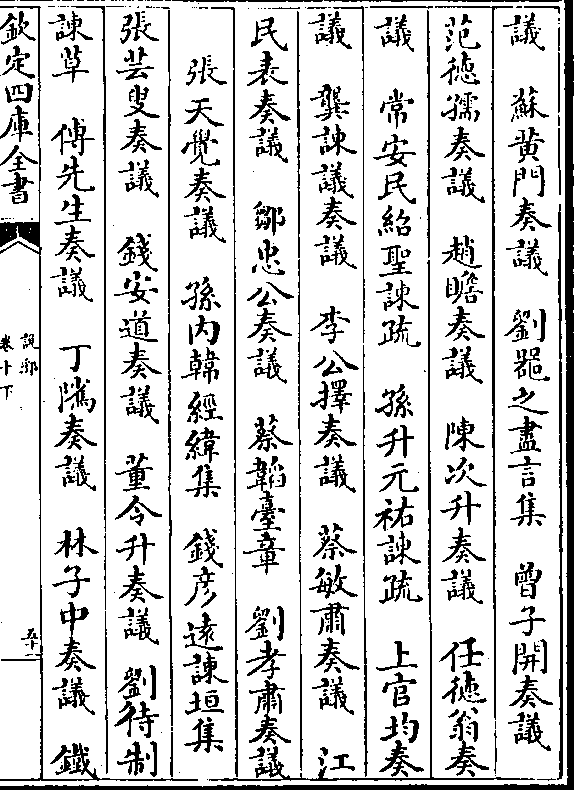 議　蘇黄門奏議　劉器之盡言集　曽子開奏議
范徳孺奏議　趙瞻奏議　陳次升奏議　任徳翁奏
議　常安民紹聖諫疏　孫升元祐諫疏　上官均奏
議　龔諫議奏議　李公擇奏議　蔡敏肅奏議　江
民表奏議　鄒忠公奏議　蔡韜臺章　劉孝肅奏議
張天覺奏議　孫内韓經緯集　錢彦逺諫垣集
張芸叟奏議　錢安道奏議　董令升奏議　劉待制
諫草　傅先生奏議　丁隲奏議　林子中奏議　鐵
欽定四庫全書
説郛
卷十下
五十一